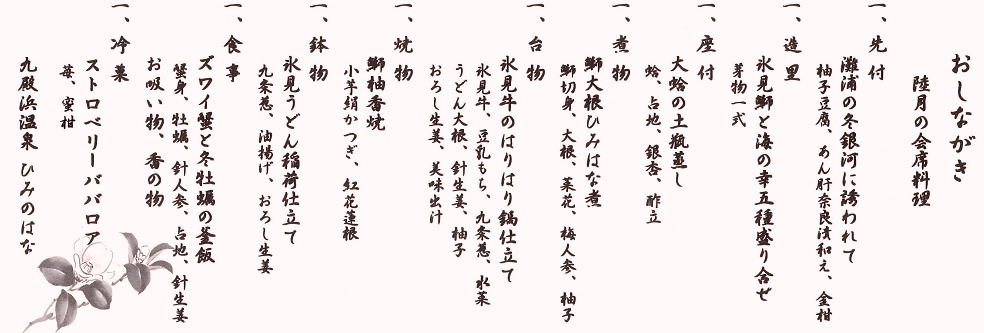 おしながき
陸月の会席料理
一、先付
灘浦の冬銀河に誘われて
柚子豆腐、あん肝奈良漬和え、金柑
一、造里
氷見鰤と海の幸五種盛り合せ
芽物一式
一、座付
大蛤の土瓶蒸し
蛤、占地、銀杏、酢立
一、煮物
鰤大根ひみはな煮
鰤切身、大根、菜花、梅人参、柚子
一、台物
氷見牛のはりはり鍋仕立て
氷見牛、豆乳もち、九条葱、水菜
うどん大根、針生姜、柚子
おろし生姜、美味出汁
一、焼物
鰤柚香焼
小芋絹かつぎ、紅花蓮根
一、鉢物
氷見うどん稲荷仕立て
九条葱、油揚げ、おろし生姜
一、食事
ズワイ蟹と冬牡蠣の釜飯
蟹身、牡蠣、針人参、占地、針生姜
お吸い物、香の物
一、冷菓
ストロベリーババロア
苺、蜜柑
九殿浜温泉 ひみのはな